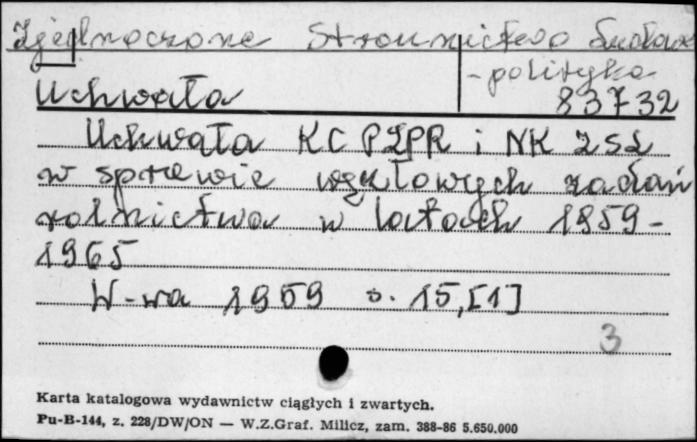 Zjednoczone Stronnictwo Ludowe
- polityka
Uchwała 83732
Uchwała KC PZPR i NK ZSL
w sprawie węzłowych zadań
rolnictwa w latach 1959-
1965
W-wa 1959 s. 15,[1]
3
Karta katalogowa wydawnictw ciągłych i zwartych.
Pu-B-144, z. 228/DW/ON — W.Z.Graf. Milicz, zam. 388-86 5.650.000